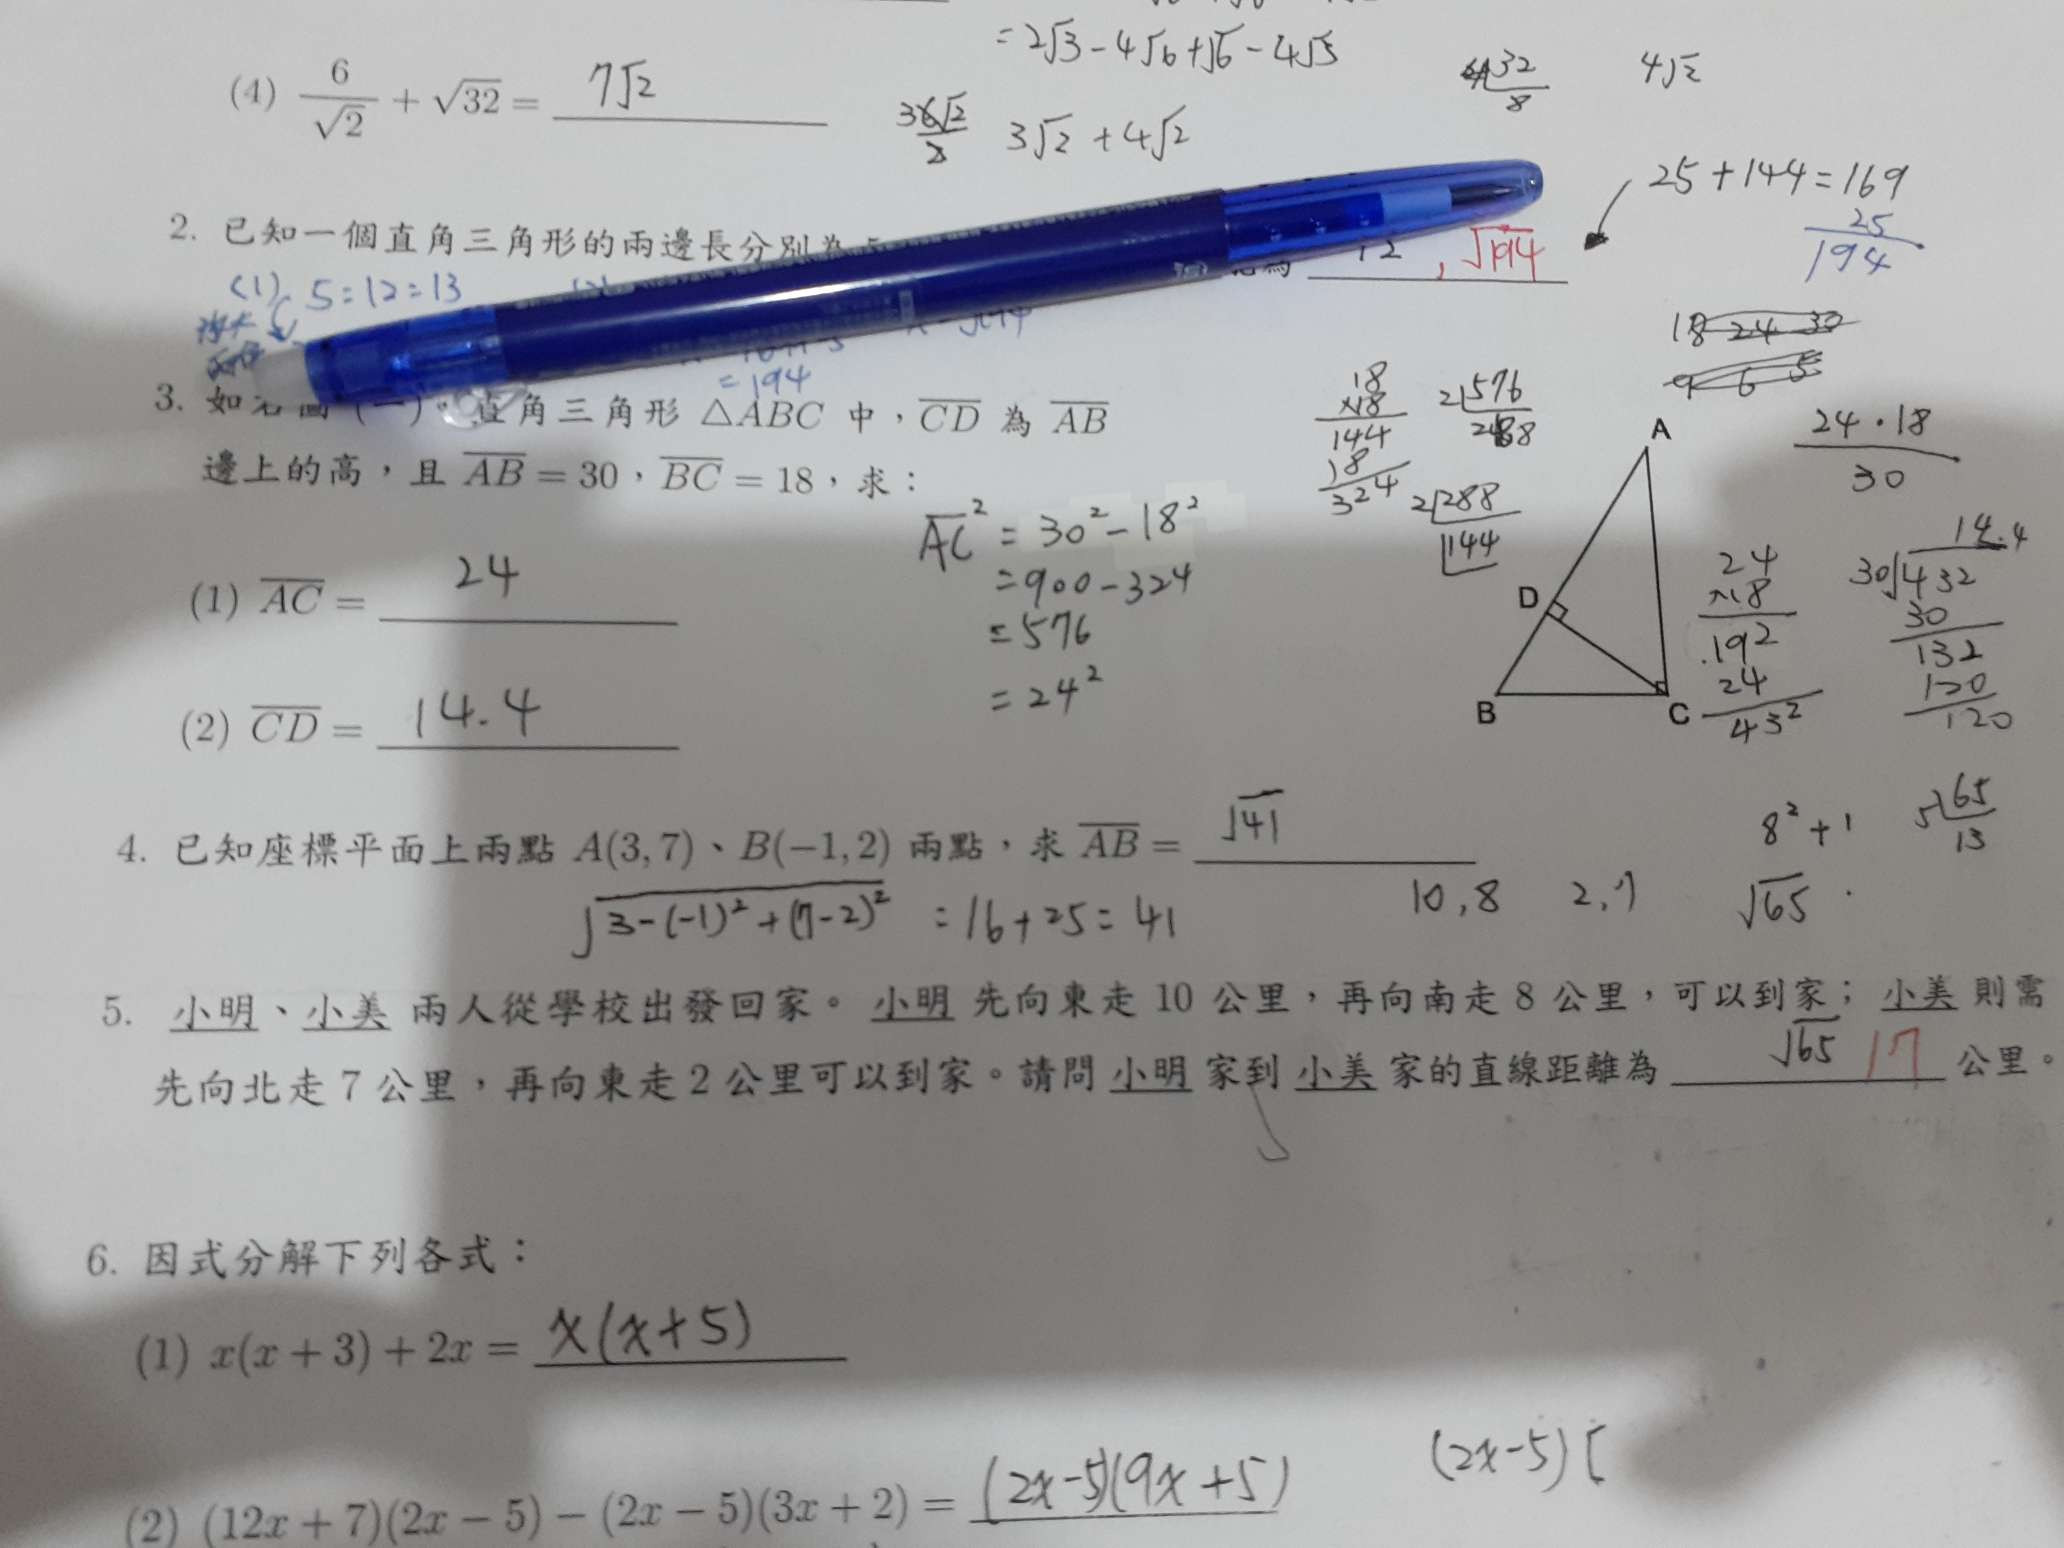 = 2√3 - 4√6 + √6 - 4√3
(4) 6/√2 + √32 = 7√2
3 6√2/2 3√2 + 4√2
32
8
4√2
25 + 144 = 169
25
194
2. 已知一個直角三角形的兩邊長分別為
12 , √194
(1) 5:12:13
= 194
18 24 30
9 6 5
3. 直角三角形 △ABC 中，CD 為 AB
邊上的高，且 AB = 30，BC = 18，求：
18
×18
144
18
324
2 576
288
2 288
144
A
D
B
C
24 · 18
30
AC² = 30² - 18²
= 900 - 324
= 576
= 24²
(1) AC = 24
(2) CD = 14.4
24
×18
192
24
432
14.4
30 432
30
132
120
120
4. 已知座標平面上兩點 A(3, 7)、B(−1, 2) 兩點，求 AB = √41
√3-(-1)² + (7-2)² = 16 + 25 = 41
10, 8 2, 7
8² + 1
√65
5 65
13
5. 小明、小美 兩人從學校出發回家。小明 先向東走 10 公里，再向南走 8 公里，可以到家；小美 則需
先向北走 7 公里，再向東走 2 公里可以到家。請問 小明 家到 小美 家的直線距離為 √65 17 公里。
6. 因式分解下列各式：
(1) x(x + 3) + 2x = x(x+5)
(2) (12x + 7)(2x − 5) − (2x − 5)(3x + 2) = (2x-5)(9x+5)
(2x-5) [